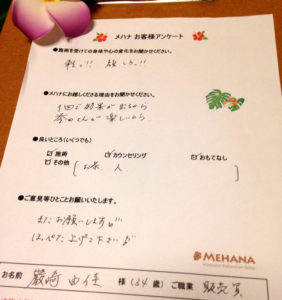 メハナ お客様アンケート
●施術を受けての身体や心の変化をお聞かせください。
軽い!! 放しか!!
●メハナにお越しくださる理由をお聞かせください。
1回で効果が出るから
参田さんが楽しいから
●良いところ(いくつでも)
☑施術 ☑カウンセリング ☑おもてなし
☑その他 お茶、人
●ご意見等ひとことお願いいたします。
またお願いします
ほっぺた上げて下さい♪
MEHANA
お名前 巌崎 由佳 様 (34歳) ご職業 販売員